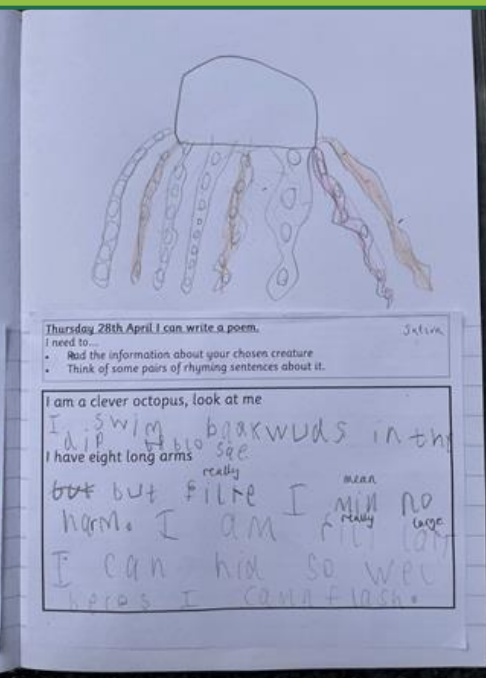 Thursday 28th April I can write a poem.
I need to...
• Read the information about your chosen creature
• Think of some pairs of rhyming sentences about it.
I am a clever octopus, look at me
I swim baakwuds in the
dip blo sae
I have eight long arms
really mean
but but filre I min no
really large
harm. I am rili larj
I can hid so wel
heres I camnflash.